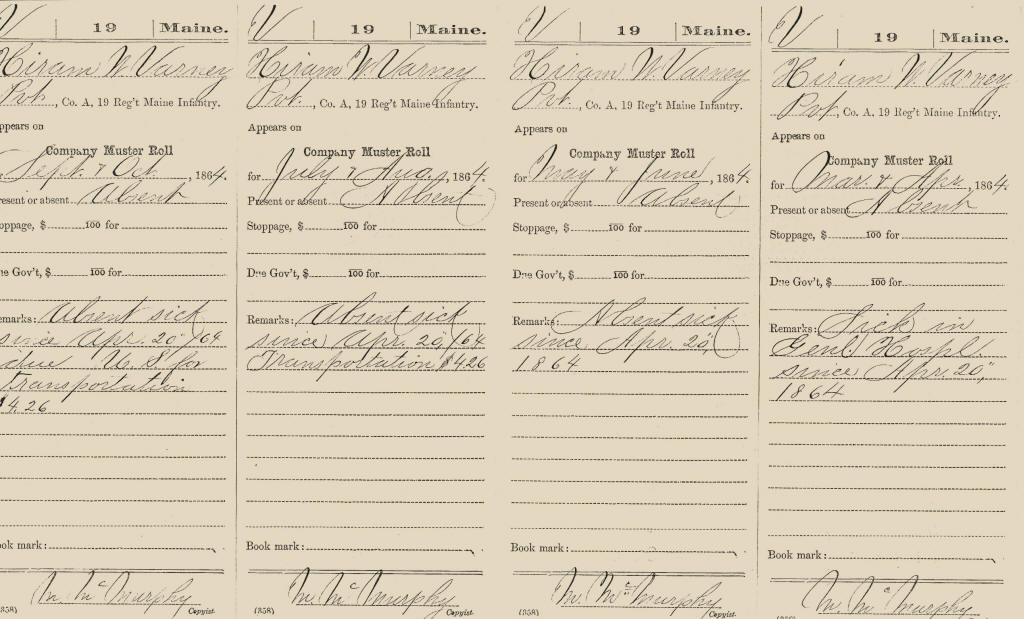 V 19 Maine.
Hiram W. Varney
Pvt., Co. A, 19 Reg't Maine Infantry.
ppears on
Company Muster Roll
Sept. & Oct., 1864.
resent or absent Absent
toppage, $ 100 for
ue Gov't, $ 100 for
emarks: Absent sick
since Apr. 20, /64
due U.S. for
transportation
$4.26
ook mark:
M. McMurphy
(358) Copyist.
V 19 Maine.
Hiram W. Varney
Pvt., Co. A, 19 Reg't Maine Infantry.
Appears on
Company Muster Roll
for July & Aug., 1864.
Present or absent Absent
Stoppage, $ 100 for
Due Gov't, $ 100 for
Remarks: Absent sick
since Apr. 20, /64
Transportation $4.26
Book mark:
M. McMurphy
(358) Copyist.
V 19 Maine.
Hiram W. Varney
Pvt., Co. A, 19 Reg't Maine Infantry.
Appears on
Company Muster Roll
for May & June, 1864.
Present or absent Absent
Stoppage, $ 100 for
Due Gov't, $ 100 for
Remarks: Absent sick
since Apr. 20,
1864
Book mark:
M. McMurphy
(358) Copyist.
V 19 Maine.
Hiram W. Varney
Pvt., Co. A, 19 Reg't Maine Infantry.
Appears on
Company Muster Roll
for Mar. & Apr., 1864.
Present or absent Absent
Stoppage, $ 100 for
Due Gov't, $ 100 for
Remarks: Sick in
Genl. Hospl.
since Apr. 20,"
1864
Book mark:
M. McMurphy
Copyist.